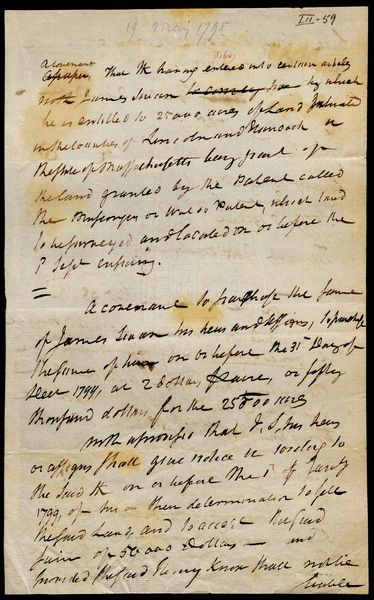 19 May 1795
III-59
A covenant
That K having entered into certain articles
with James Swan to convey by which
he is entitled to 25000 acres of Land situated
in the counties of Lincoln and Hancock in
the State of Massachusetts being part of
the land granted by the Patent called
the Muscongus or Waldo Patent which land
to be surveyed and located on or before the
1 Sept ensuing.
A covenant to purchase the same
of James Swan his heirs and assigns, to purchase
the same of him on or before the 31st Day of
Decr 1799, at 2 dollars acre, or fifty
thousand dollars for the 25000 acres
with a promise that J. S, his heirs
or assigns shall give notice in writing to
the said K on or before the 1st of
1799, of his or their determination to sell
the said land, and to accept the said
sum of 50000 dollars — and
provided the said Henry Knox shall not be
liable